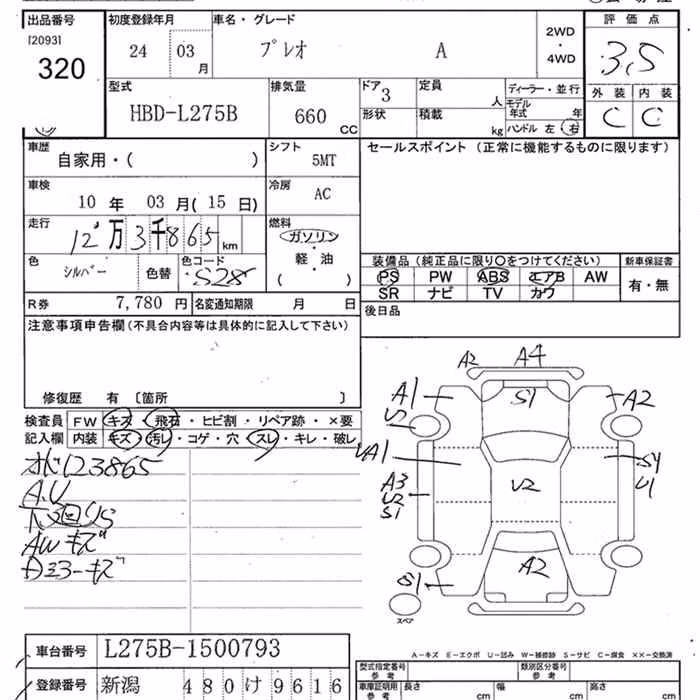 出品番号 初度登録年月 車名・グレード 2WD・4WD 評価点
[2093] 320 24 03月 プレオ A 3.5
型式 排気量 ドア 3 定員 人 ディーラー・並行 外装 内装
HBD-L275B 660 CC 形状 積載 kg モデル年式 年 C C
ハンドル 左 右
車歴 シフト セールスポイント (正常に機能するものに限ります)
自家用・( ) 5MT
車検 冷房
10 年 03 月( 15 日) AC
走行 燃料
12万3千865km ガソリン
色 シルバー 色替 色コード S28 軽・油 ( )
装備品(純正品に限り〇をつけてください) 新車保証書
PS PW ABS エアB AW 有・無
SR ナビ TV カワ
R券 7,780 円 名変通知期限 月 日
後日品
注意事項申告欄(不具合内容等は具体的に記入して下さい)
修復歴 有 〔箇所 〕
検査員 FW キズ・飛石・ヒビ割・リペア跡・×要
記入欄 内装 キズ・汚レ・コゲ・穴・スレ・キレ・破レ
A2 A4
A1 S1 A2
U2
UA1 S4
U1
A3 U2
U2
S1
A2
S1
スペア
123865
A.U
下廻りS
AWキズ
Dミラーキズ
A-キズ E-エクボ U-凹み W-補修跡 S-サビ C-腐食 ××-交換済
車台番号 L275B-1500793
型式指定番号 参考 類別区分番号 参考
登録番号 新潟 480 け 9616
車庫証明用 参考 長さ cm 幅 cm 高さ cm